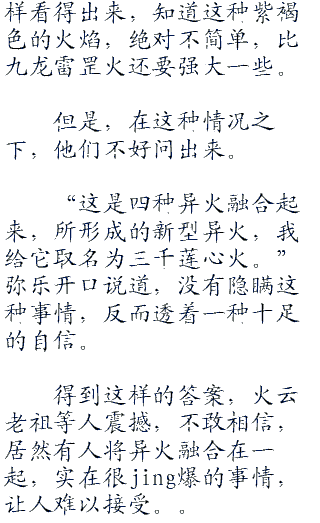 样看得出来，知道这种紫褐
色的火焰，绝对不简单，比
九龙雷罡火还要强大一些。
但是，在这种情况之
下，他们不好问出来。
“这是四种异火融合起
来，所形成的新型异火，我
给它取名为三千莲心火。”
弥乐开口说道，没有隐瞒这
种事情，反而透着一种十足
的自信。
得到这样的答案，火云
老祖等人震撼，不敢相信，
居然有人将异火融合在一
起，实在很jing爆的事情，
让人难以接受。。